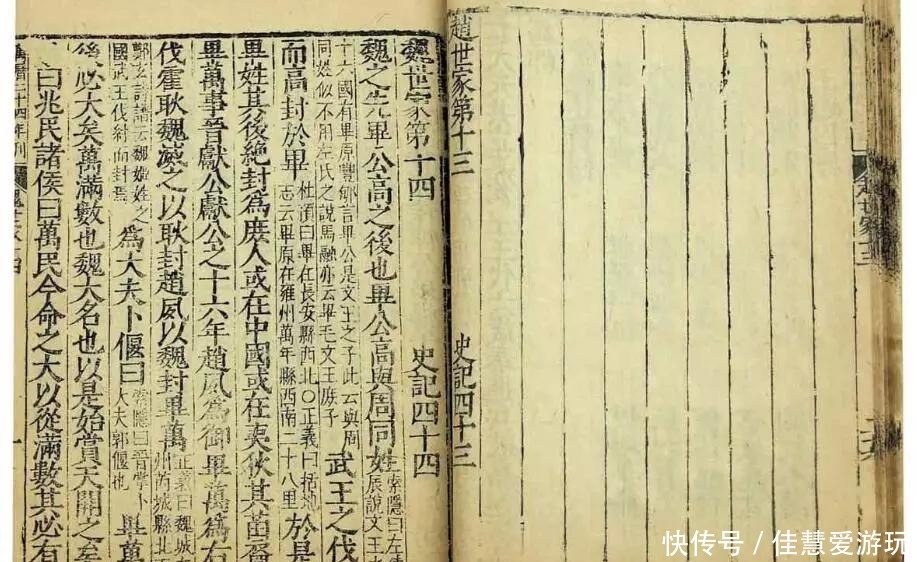 趙世家十三
趙世家第十三 史記四十三
魏世家第十四 史記四十四
魏之先畢公高之後也畢公高與周同姓
索隱曰左
辰說文王
十六國有畢原豐郇言畢公是文王之子此云與周
同姓似不用左氏之說馬融亦云畢毛文王庶子
武王之伐
而高封於畢
杜預曰畢在長安縣西北○正義曰括地
志云畢原在雍州萬年縣西南二十八里
於是
畢姓其後絕封為庶人或在中國或在夷狄其苗裔
畢萬事晉獻公獻公之十六年趙夙為御畢萬為右
伐霍耿魏滅之以耿封趙夙以魏封畢萬
正義曰魏城
州芮城縣北
鄭玄詩譜云魏姬姓之
國武王伐紂而封焉
為大夫卜偃曰
索隱曰晉掌卜
大夫郭偃也
畢萬
後必大矣萬滿數也魏大名也以是始賞天開之矣
曰兆民諸侯曰萬民今命之大以從滿數其必有
萬曆二十四年刊 魏世家十四 一
快传号／佳慧爱游玩